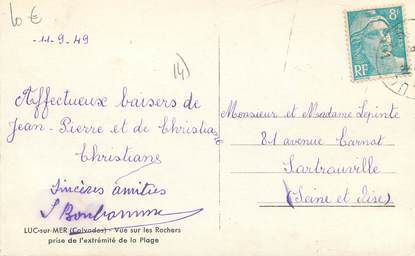 10 €
-11-9-49
14
Affectueux baisers de
Jean-Pierre et de Christiane
Christiane
Sincères amitiés
LUC-sur-MER (Calvados) - Vue sur les Rochers
prise de l'extrémité de la Plage
8F
RF
Monsieur et Madame Lepinte
81 avenue Carnot
Sartrouville
(Seine et Oise)